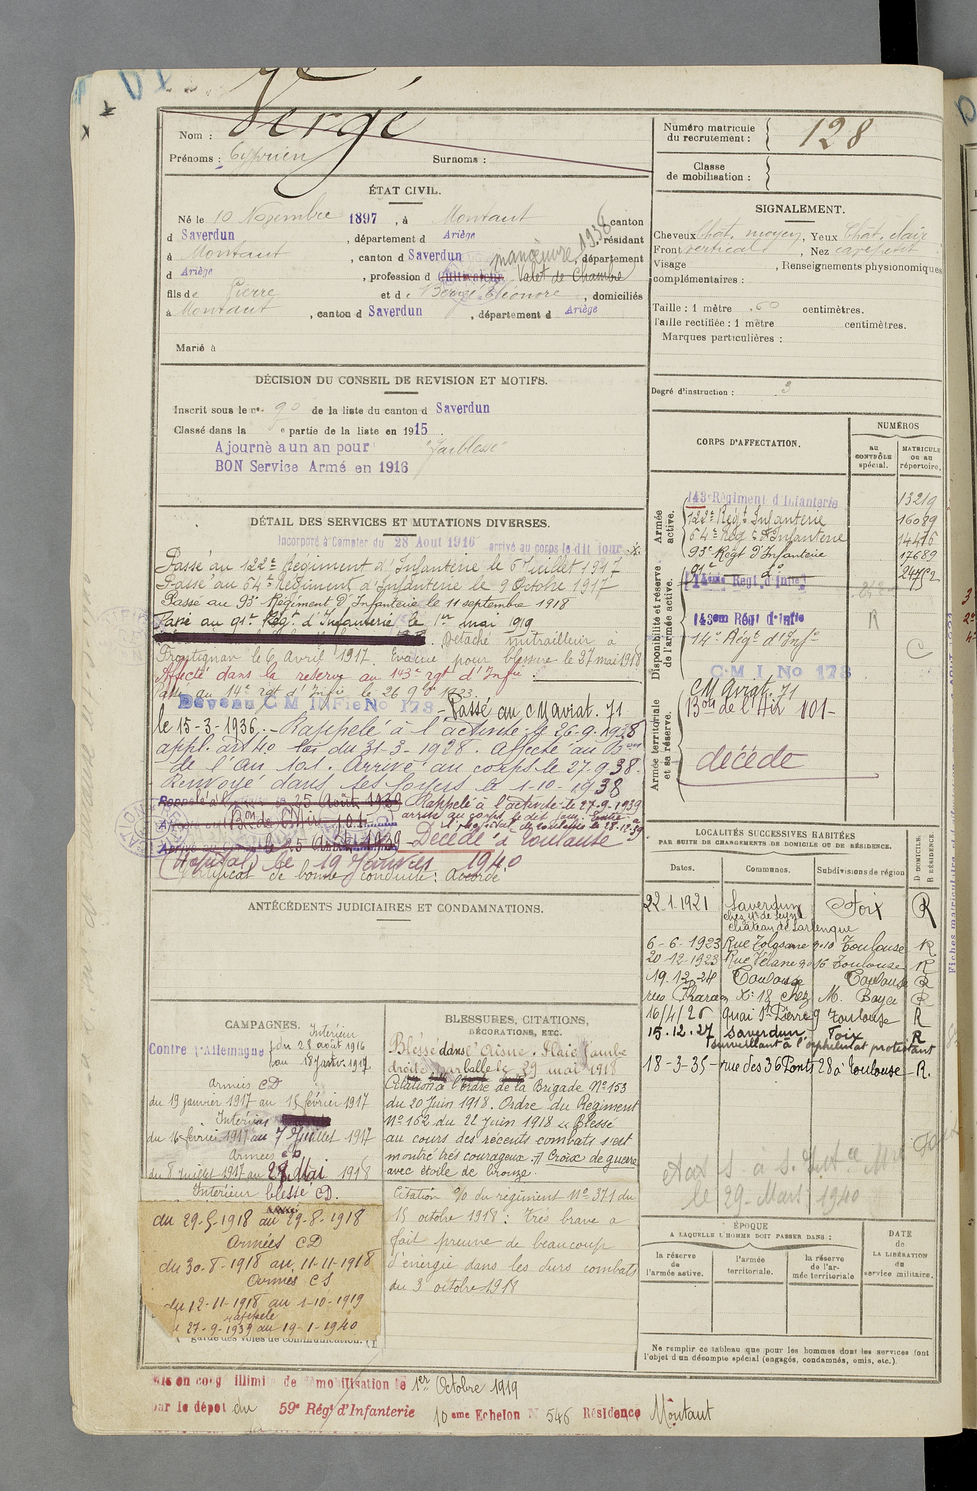 Nom : Vergé
Prénoms : Cyprien Surnoms :
ÉTAT CIVIL.
Né le 10 Novembre 1897, à Montaut canton
d Saverdun, département d Ariège, résidant
à Montaut, canton de Saverdun manœuvre 1936, département
d Ariège, profession d Valet de Chambre
fils de Pierre et de Eléonore, domiciliés
à Montaut, canton d Saverdun, département d Ariège
Marié à
DÉCISION DU CONSEIL DE REVISION ET MOTIFS.
Inscrit sous le n° 90 de la liste du canton d Saverdun
Classé dans la e partie de la liste en 1915.
Ajourné a un an pour "faiblesse"
BON Service Armé en 1916
DÉTAIL DES SERVICES ET MUTATIONS DIVERSES.
Incorporé à Compter du 28 Aout 1916 arrivé au corps le dit jour
Passé au 122e Régiment d'Infanterie le 6 juillet 1917
Passé au 64e Régiment d'Infanterie le 9 Octobre 1917
Passé au 93e Régiment D'Infanterie le 11 septembre 1918
Passé au 91e Régt d'Infanterie le 1er mai 1919
Détaché mitrailleur à
Frontignan le 6 Avril 1917. Evacué pour blessure le 27 mai 1918
Affecté dans la reserve au 143e rgt d'Infie
Passé au 14e rgt d'Infie le 26 9bre 1923.
Devenu C M INFie No 178 - Passé au CM aviat. 71
le 15-3-1936. - Rappelé à l'activité le 26-9-1938
appl. art 40 loi du 31-3-1928. Affecté au Bon
de l'air 101. Arrivé au corps le 27.9.38.
Renvoyé dans ses foyers le 1-10-1938
Rappelé à l'activité le 25 Août 1939 Rappelé à l'activité le 27-9-1939
Affecté au Bon de l'Air 101 arrivé au corps le dit jour. Entré à
Arrivé au corps le 25 Août 1939 l'hopital de toulouse le 28-12-39
- Décédé à Toulouse
(Hopital) le 19 Janvier 1940
Certificat de bonne conduite : Accordé
ANTÉCÉDENTS JUDICIAIRES ET CONDAMNATIONS.
CAMPAGNES.
Contre l'Allemagne
Intérieur
du 28 août 1916
au 18 janv. 1917
Armées CD
du 19 janvier 1917 au 15 février 1917
Intérieur
du 16 février 1917 au 7 Juillet 1917
Armées CD
du 8 Juillet 1917 au 28 Mai 1918
Intérieur blessé CD.
du 29-5-1918 au 29-8-1918
Armées CD
du 30-8-1918 au 11-11-1918
Armées CS
du 12-11-1918 au 1-10-1919
rappelé
27-9-1939 au 19-1-1940
garde des voies de communication.
BLESSURES, CITATIONS,
DÉCORATIONS, ETC.
Blessé dans l'Aisne, Plaie jambe
droite par balle le 29 mai 1918
Citation à l'ordre de la Brigade N° 153
du 20 Juin 1918. Ordre du Regiment
N° 162 du 22 Juin 1918 « Blessé
au cours des récents combats s'est
montré très courageux » Croix de guerre
avec étoile de bronze.
Citation % du régiment N° 371 du
15 octobre 1918 : très brave a
fait preuve de beaucoup
d'énergie dans les durs combats
du 3 octobre 1918
Mis en cong illimi de démobilisation le 1er Octobre 1919
par le dépot du 59e Régt d'Infanterie 10 eme Echelon N° 546 Résidence Montaut
Numéro matricule
du recrutement : 128
Classe
de mobilisation :
SIGNALEMENT.
Cheveux Chât. moyen, Yeux Chât. clair
Front vertical, Nez cave petit
Visage , Renseignements physionomiques
complémentaires :
Taille : 1 mètre 60 centimètres.
Taille rectifiée : 1 mètre centimètres.
Marques particulières :
Degré d'instruction : 3
CORPS D'AFFECTATION.
NUMÉROS
au CONTRÔLE spécial.
MATRICULE ou au répertoire.
Armée active.
143e Régiment d'Infanterie 13219
122e Régt Infanterie 16089
64e Régt d'Infanterie 14476
93e Régt D'Infanterie 17689
91e do 24792
Disponibilité et réserve de l'armée active.
14ème Régt d'Infie
143em Régt d'Infie R
14e Régt d'Infie
C M I No 178
Armée territoriale et sa réserve.
CM aviat. 71
Bon de l'Air 101-
décédé
LOCALITÉS SUCCESSIVES HABITÉES
PAR SUITE DE CHANGEMENTS DE DOMICILE OU DE RÉSIDENCE.
Dates. Communes. Subdivisions de région D DOMICILE. R RÉSIDENCE.
22.1.1921 Saverdun Foix R
château de Larlenque
6-6-1923 Rue Tolosane n°10 Toulouse R
20-12-1923 Rue Vélane n°16 Toulouse R
19.12-24 Toulouse Toulouse R
rue Pharaon N° 18 chez M. Boyer R
16/4/26 quai St Pierre 9 Toulouse R
15.12.27 Saverdun Foix R
surveillant à l'orphelinat protestant
18-3-35 - rue des 36 Ponts 28 à Toulouse - R.
le 29 Mars 1940
ÉPOQUE
A LAQUELLE L'HOMME DOIT PASSER DANS :
la réserve de l'armée active.
l'armée territoriale.
la réserve de l'armée territoriale
DATE de LA LIBÉRATION du service militaire.
Ne remplir ce tableau que pour les hommes dont les services font
l'objet d'un décompte spécial (engagés, condamnés, omis, etc.).